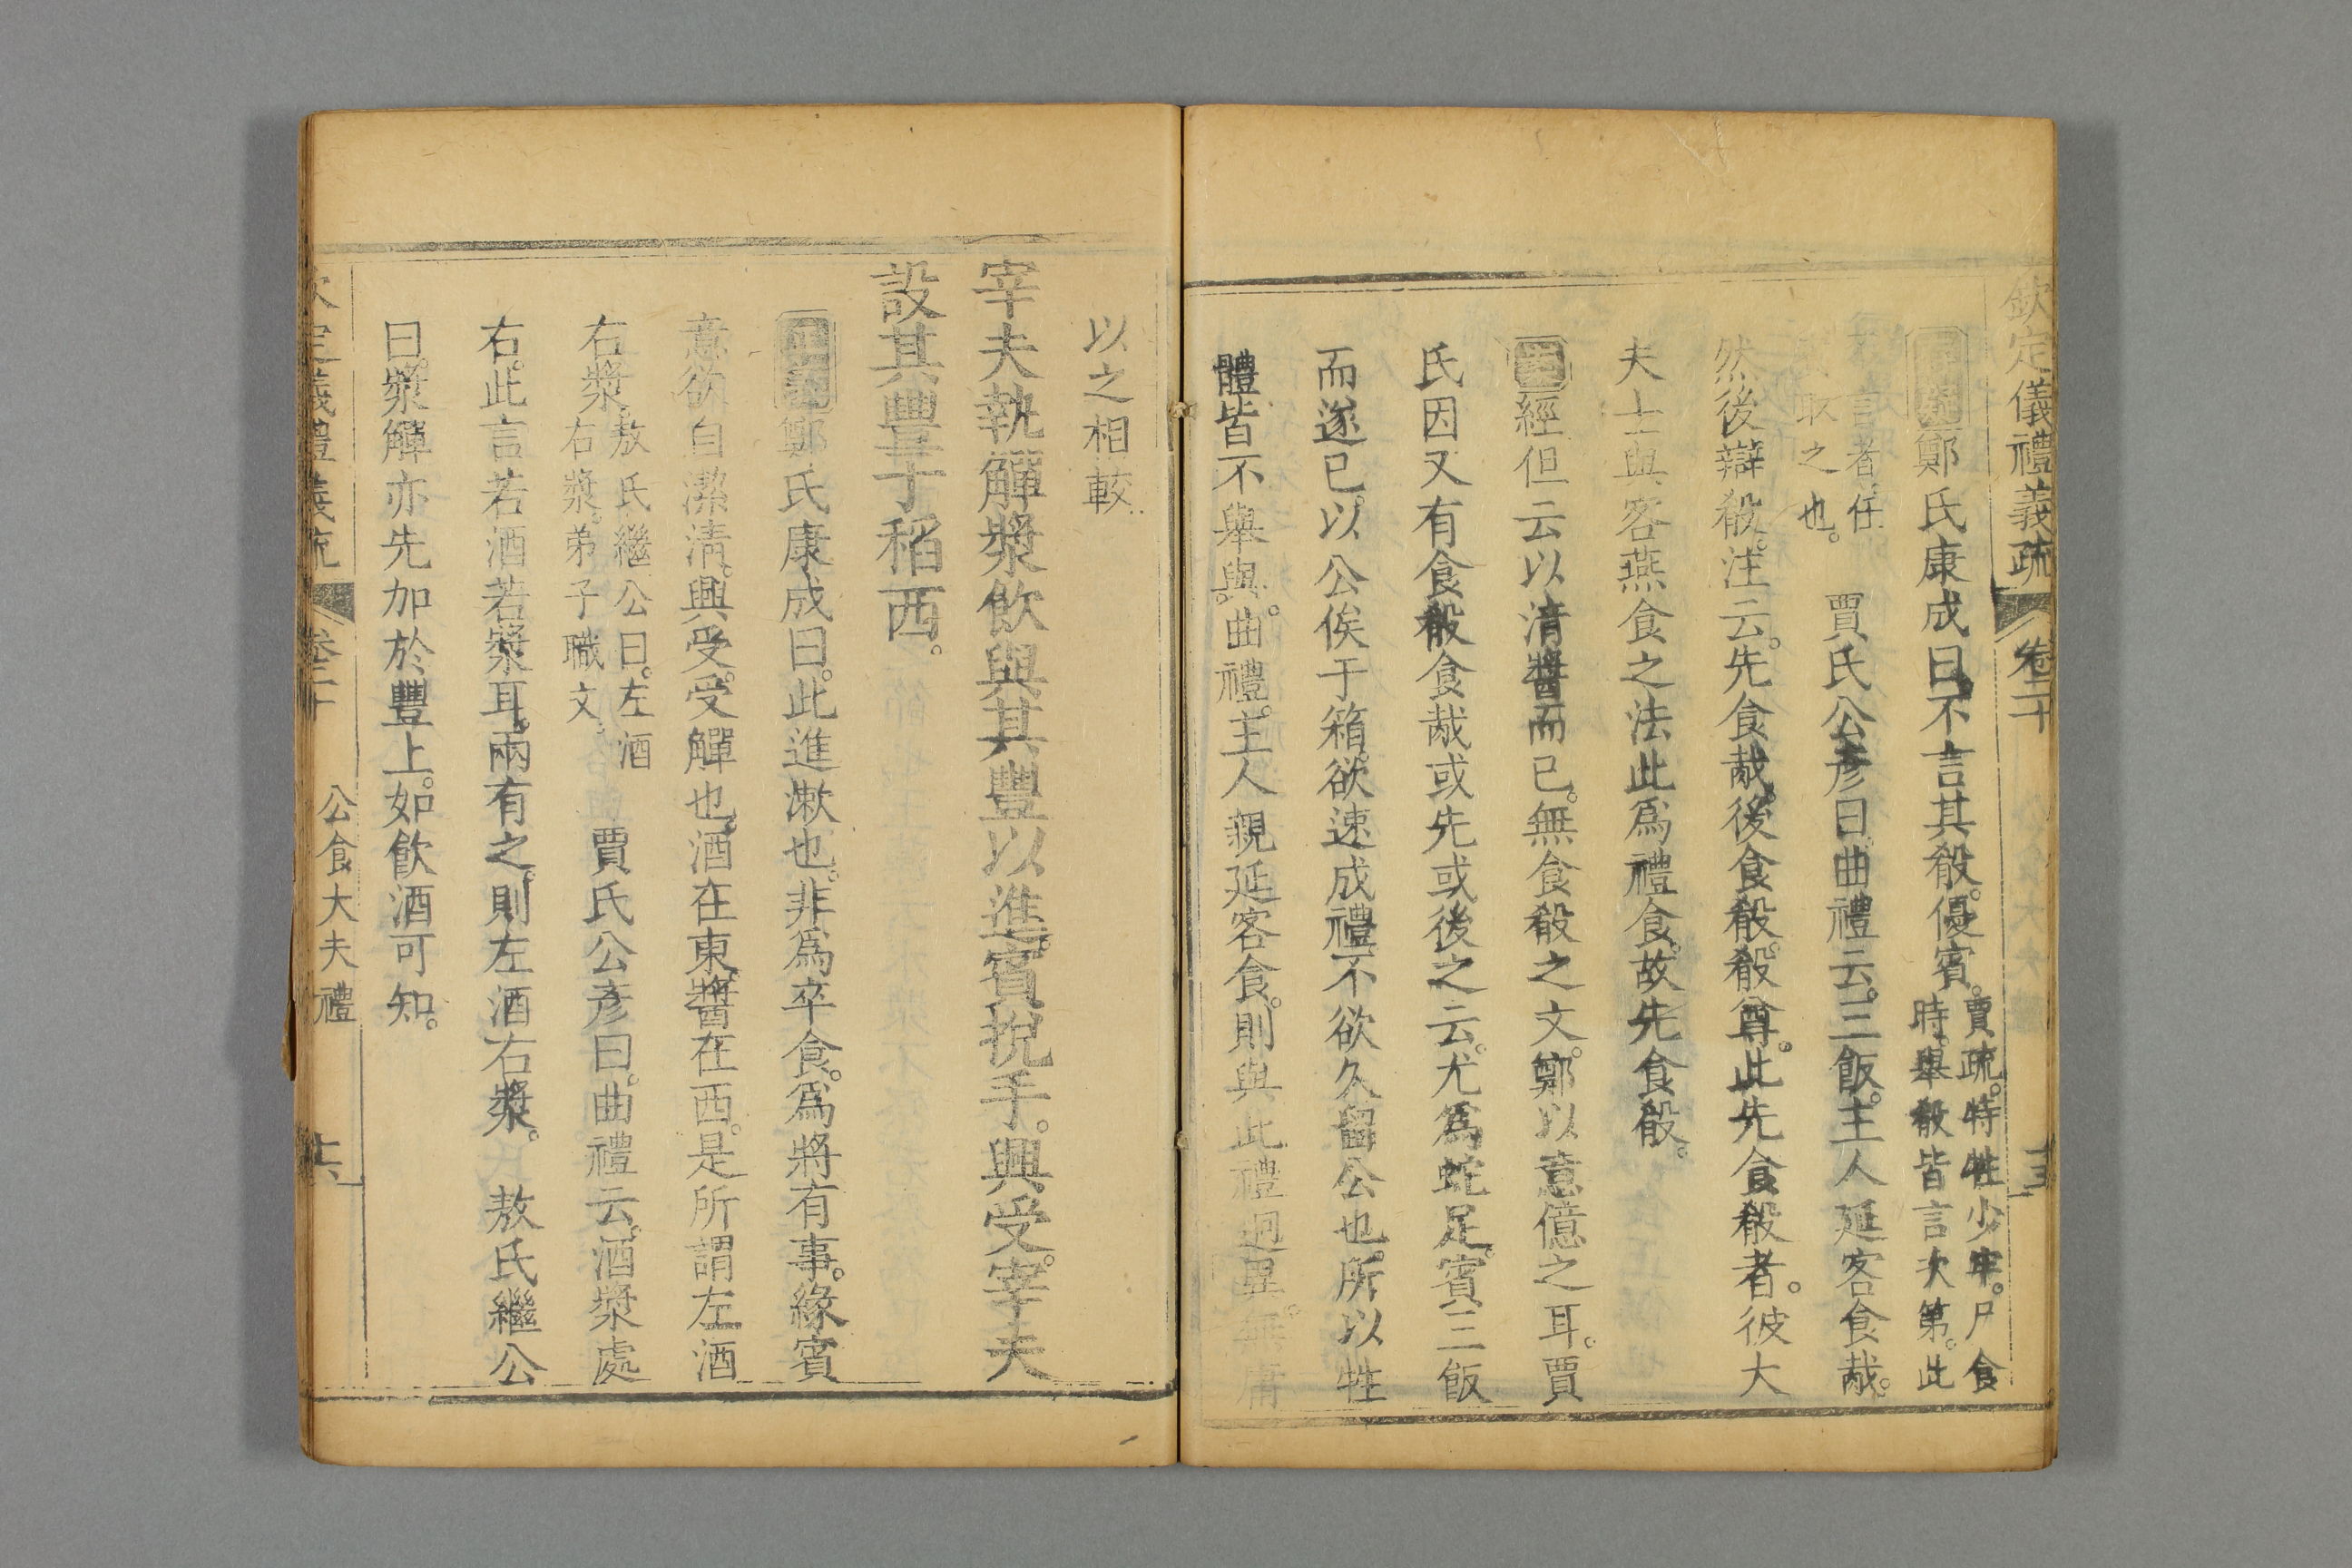 欽定儀禮義疏 卷二十 十五
鄭氏康成曰不言其殽優賓賈疏特牲少牢尸食
時舉殽皆言次第此
不言者任
取之也 賈氏公彥曰曲禮云三飯主人延客食胾
然後辯殽注云先食胾後食殽殽尊此先食殽者彼大
夫士與客燕食之法此爲禮食故先食殽
經但云以清醬而已無食殽之文鄭以意億之耳賈
氏因又有食殽食胾或先或後之云尤爲蛇足賓三飯
而遂已以公俟于箱欲速成禮不欲久留公也所以牲
體皆不舉與曲禮主人親延客食則與此禮迥異無庸
以之相較
宰夫執觶漿飲與其豐以進賓挩手興受宰夫
設其豐于稻西
正義鄭氏康成曰此進漱也非爲卒食爲將有事緣賓
意欲自潔清興受受觶也酒在東漿在西是所謂左酒
右漿敖氏繼公曰左酒
右漿弟子職文 賈氏公彥曰曲禮云酒漿處
右此言若酒若漿耳兩有之則左酒右漿 敖氏繼公
曰漿觶亦先加於豐上如飲酒可知
欽定儀禮義疏 卷二十 公食大夫禮 十六